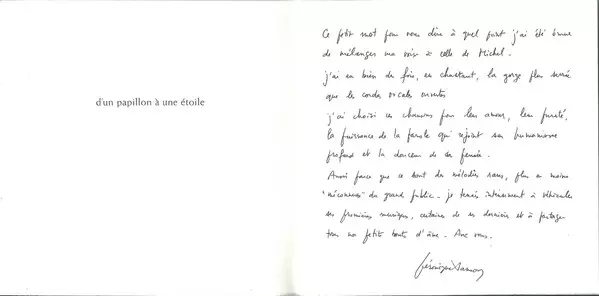 d'un papillon à une étoile
Ce petit mot pour vous dire à quel point j'ai été émue
de mélanger ma voix à celle de Michel.
j'ai eu bien des fois, en chantant, la gorge plus serrée
que les cordes vocales ouvertes
j'ai choisi ces chansons pour leur amour, leur pureté,
la puissance de la parole qui rejoint son humanisme
profond et la douceur de ses pensées.
Aussi parce que ce sont des mélodies rares, plus ou moins
"méconnues" du grand public. je tenais intensément à véhiculer
ses premières musiques, certaines de ses dernières et à partager
tous nos petits bouts d'âme. Avec vous.
Véronique Sanson